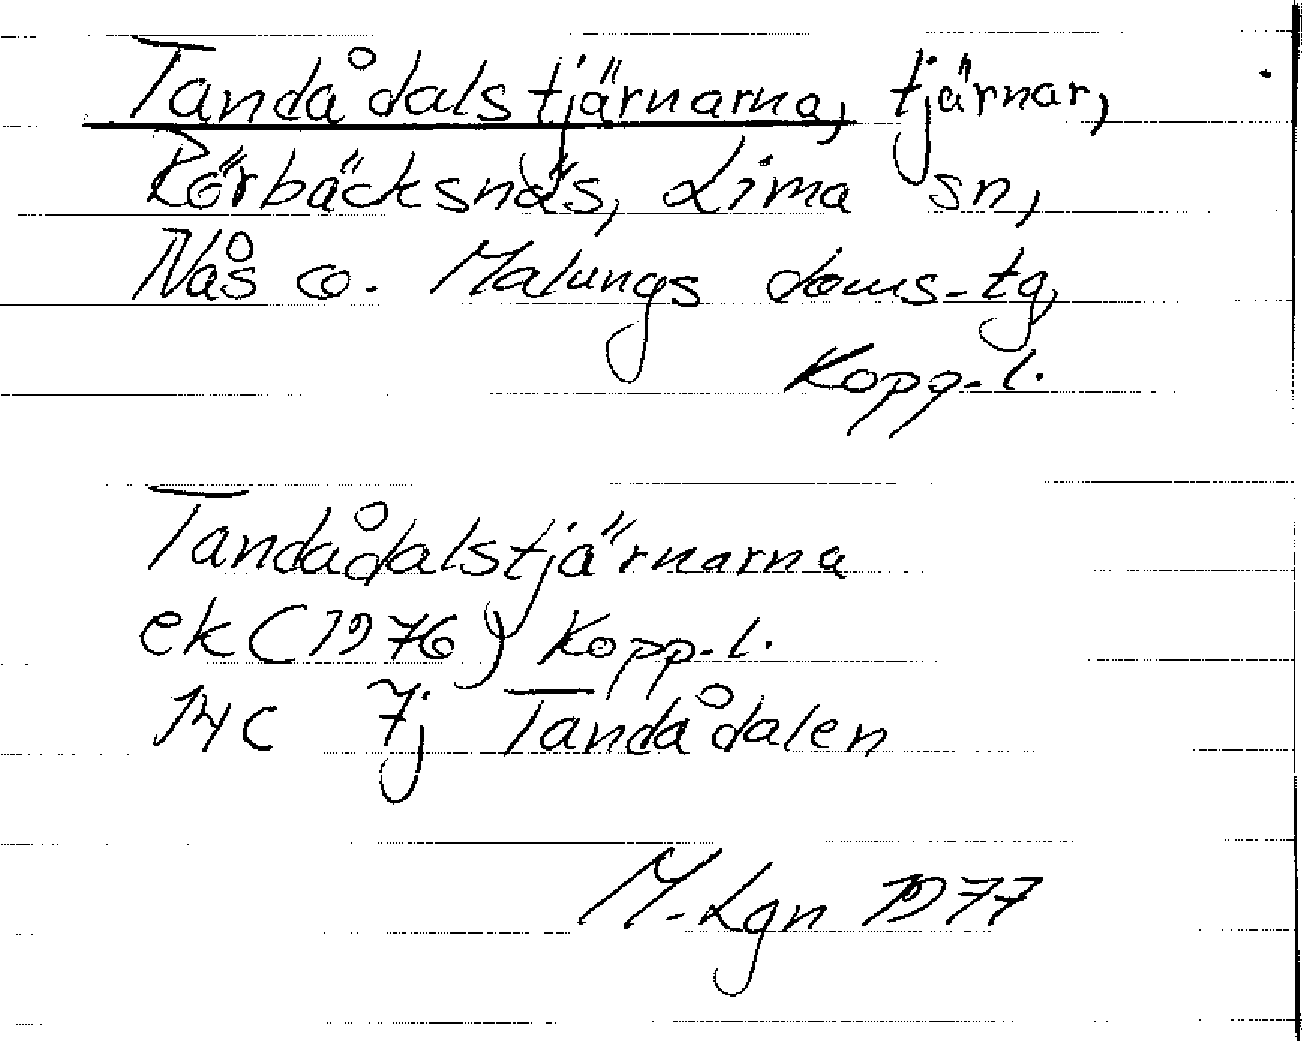 Tandådalstjärnarna, tjärnar,
Rörbäcksnäs, Lima sn,
Nås o. Malungs doms-tg,
Kopp-l.
Tandådalstjärnarna
ek (1976) Kopp-l.
14C 7j Tandådalen
M-Lgn 1977